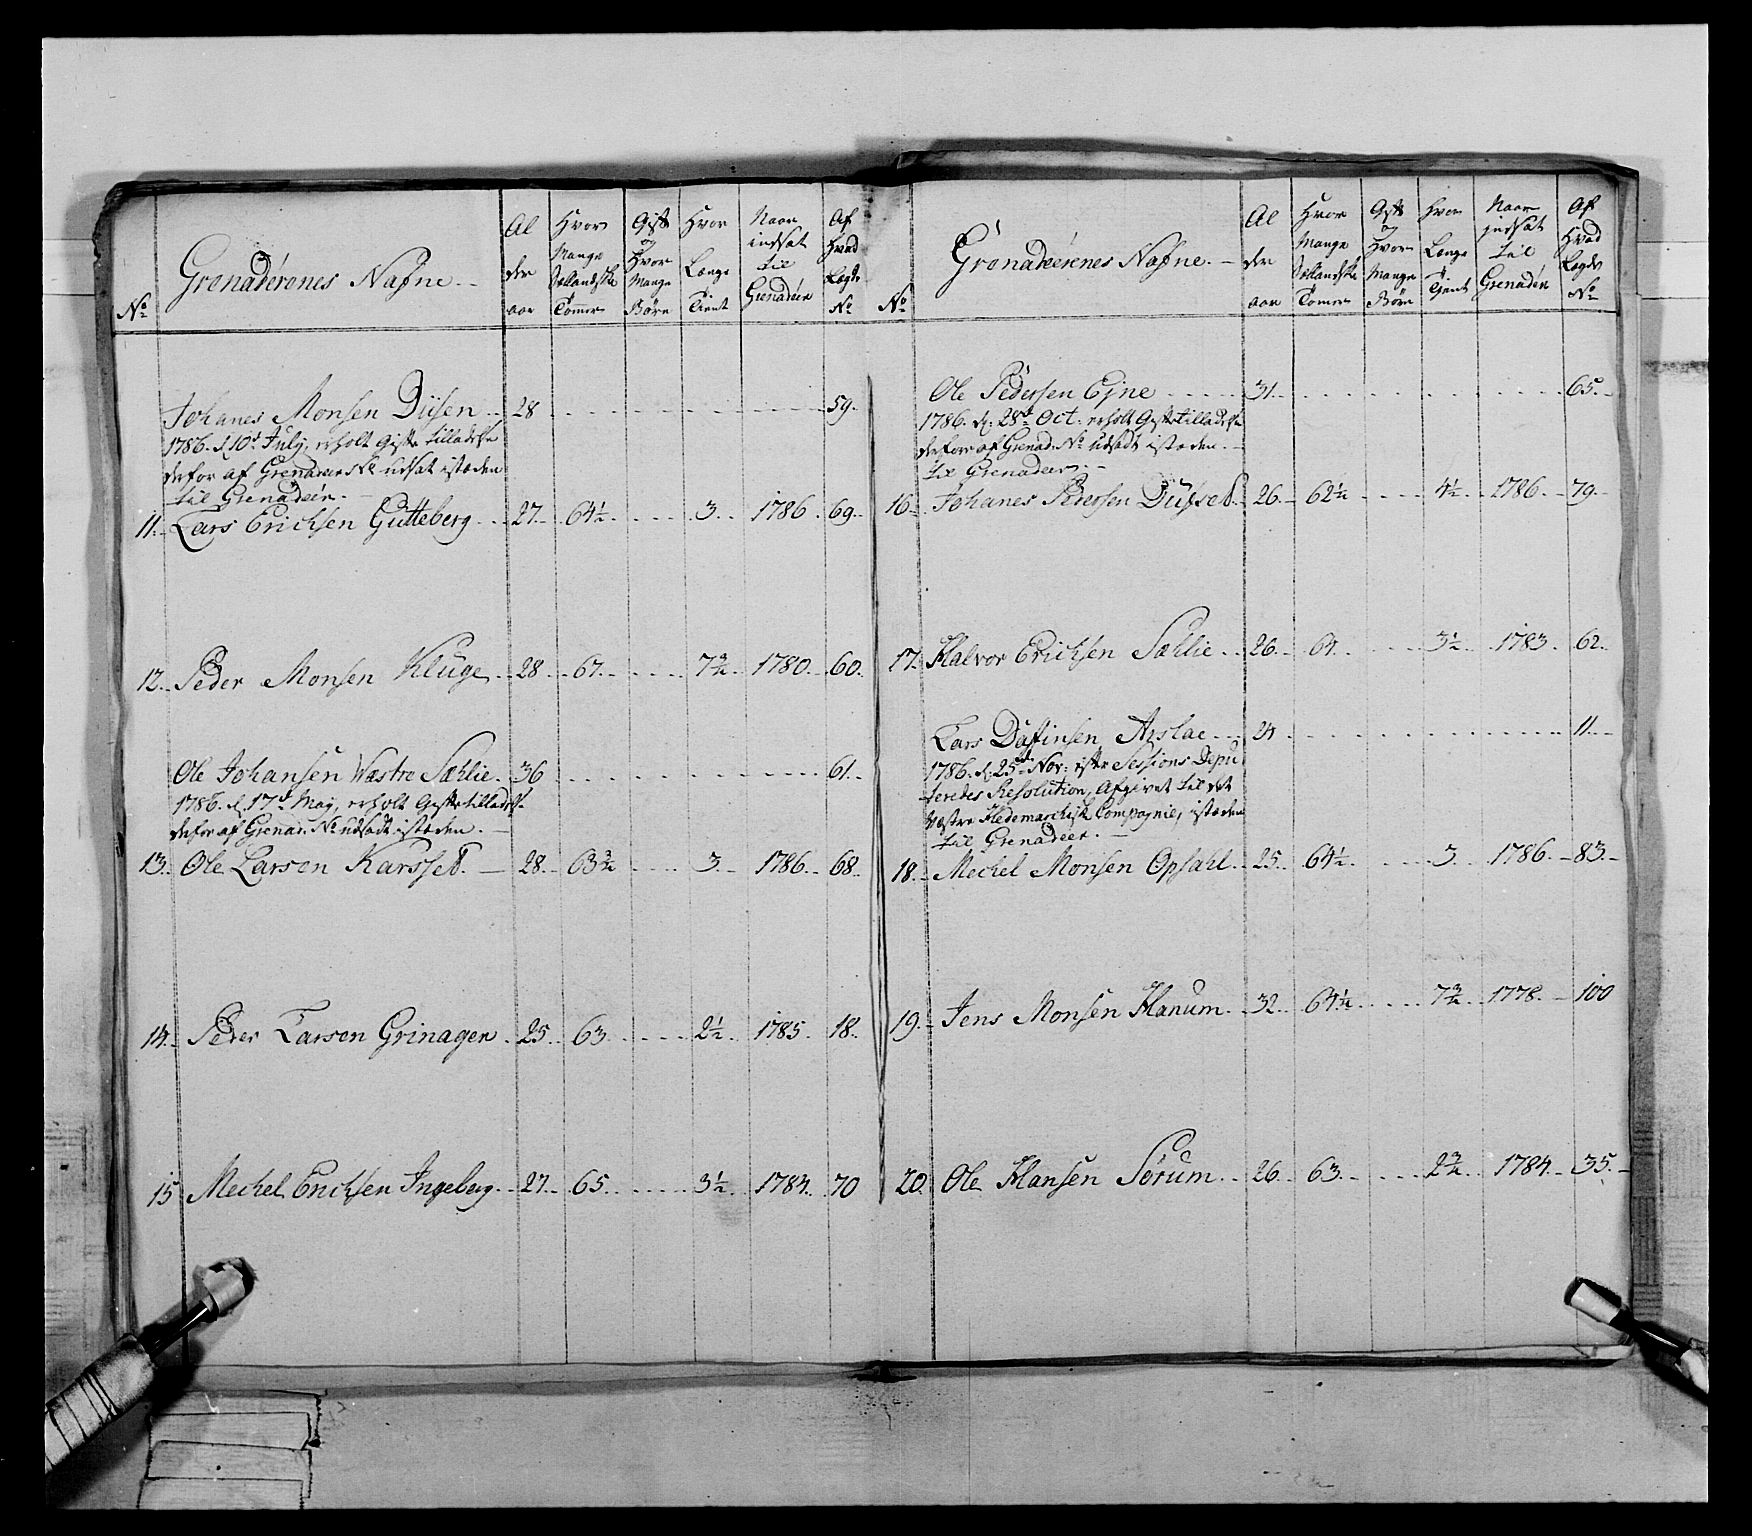 No
Grenadérenes Nafne
Al der aar
Hvor Mange Sællandske Tommer
Gift og Hvor Mange Børn
Hvor Længe Tient
Naar indsat til Grenadéer
Af Hvad Lægds No
Johanes Monsen Diisen 28 59
1786. d. 10de July, erholt Gifte tilladelse
derfor af Grenadeer No udsat istæden
til Grenadeér.
11. Lars Erichsen Gutteberg 27 64½ 3 1786 69
12. Peder Monsen Kluge 28 67 7¾ 1780 60
Ole Johansen Wæstre Sæhlie 36 61
1786. d. 17de May, erholt Gifte tilladelse
derfor af Grenad: No udsadt istæden.
13. Ole Larsen Karsset 28 63¾ 3 1786 68
14. Peder Larsen Grinagen 25 63 2½ 1785 18
15 Mechel Erichsen Ingeberg 27 65 3½ 1784 70
No
Grenadeérenes Nafne
Al der aar
Hvor Mange Sællandske Tommer
Gift og Hvor Mange Børn
Hvor Længe Tjent
Naar indsat til Grenadér
Af Hvad Lægds No
Ole Pedersen Ejne 31 65
1786. d. 28de Oct: erholt Gifte tilladelse
derfore af Grenad: No udsadt istæden
til Grenadeer.
16. Johanes Pedersen Dufset 26 62½ 4½ 1786 79
17. Halvor Erichsen Sæhlie 26 64 3½ 1783 62
Lars Daffinsen Aislae 24 11
1786. d. 25de Nov: efter Sessions Depu
teredes Resolution, Afgivet til det
Vestre Hedemarchisk Compagnie, istæden
til Grenadeer.
18. Mechel Monsen Opsahl 25 64½ 3 1786 83
19. Jens Monsen Hanum 32 64½ 7¾ 1778 100
20. Ole Hansen Sørum 26 63 2¾ 1784 35